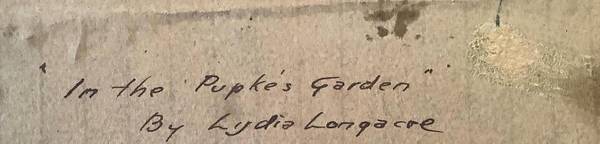 "In the Pupke's Garden"
By Lydia Longacre